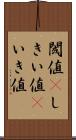 閾値し
きい値
いき値